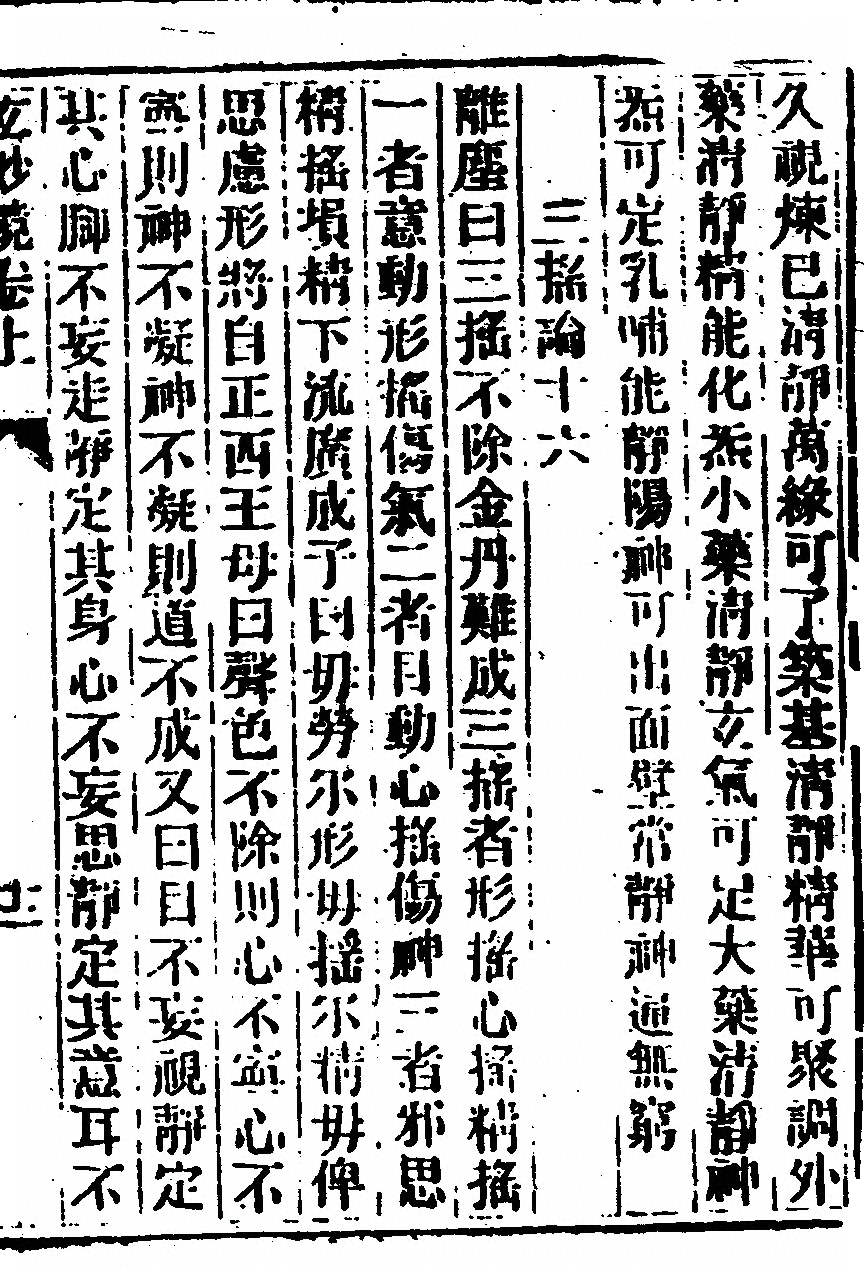 久視煉己清静萬緣可了築基清静精華可聚調外
藥清靜精能化炁小藥清靜玄氣可足大藥清靜神
炁可定乳哺能靜陽神可出面壁常靜神通無窮
三搖論十六
離塵曰三搖不除金丹難成三搖者形搖心搖精搖
一者意動形搖傷氣二者目動心搖傷神三者邪思
精搖損精下流廣成子曰毋勞尔形毋搖尔精毋俾
思慮形將自正西王母曰聲色不除則心不寧心不
寧則神不凝神不凝則道不成又曰目不妄視靜定
其心脚不妄走静定其身心不妄思静定其意耳不
玄妙鏡卷上